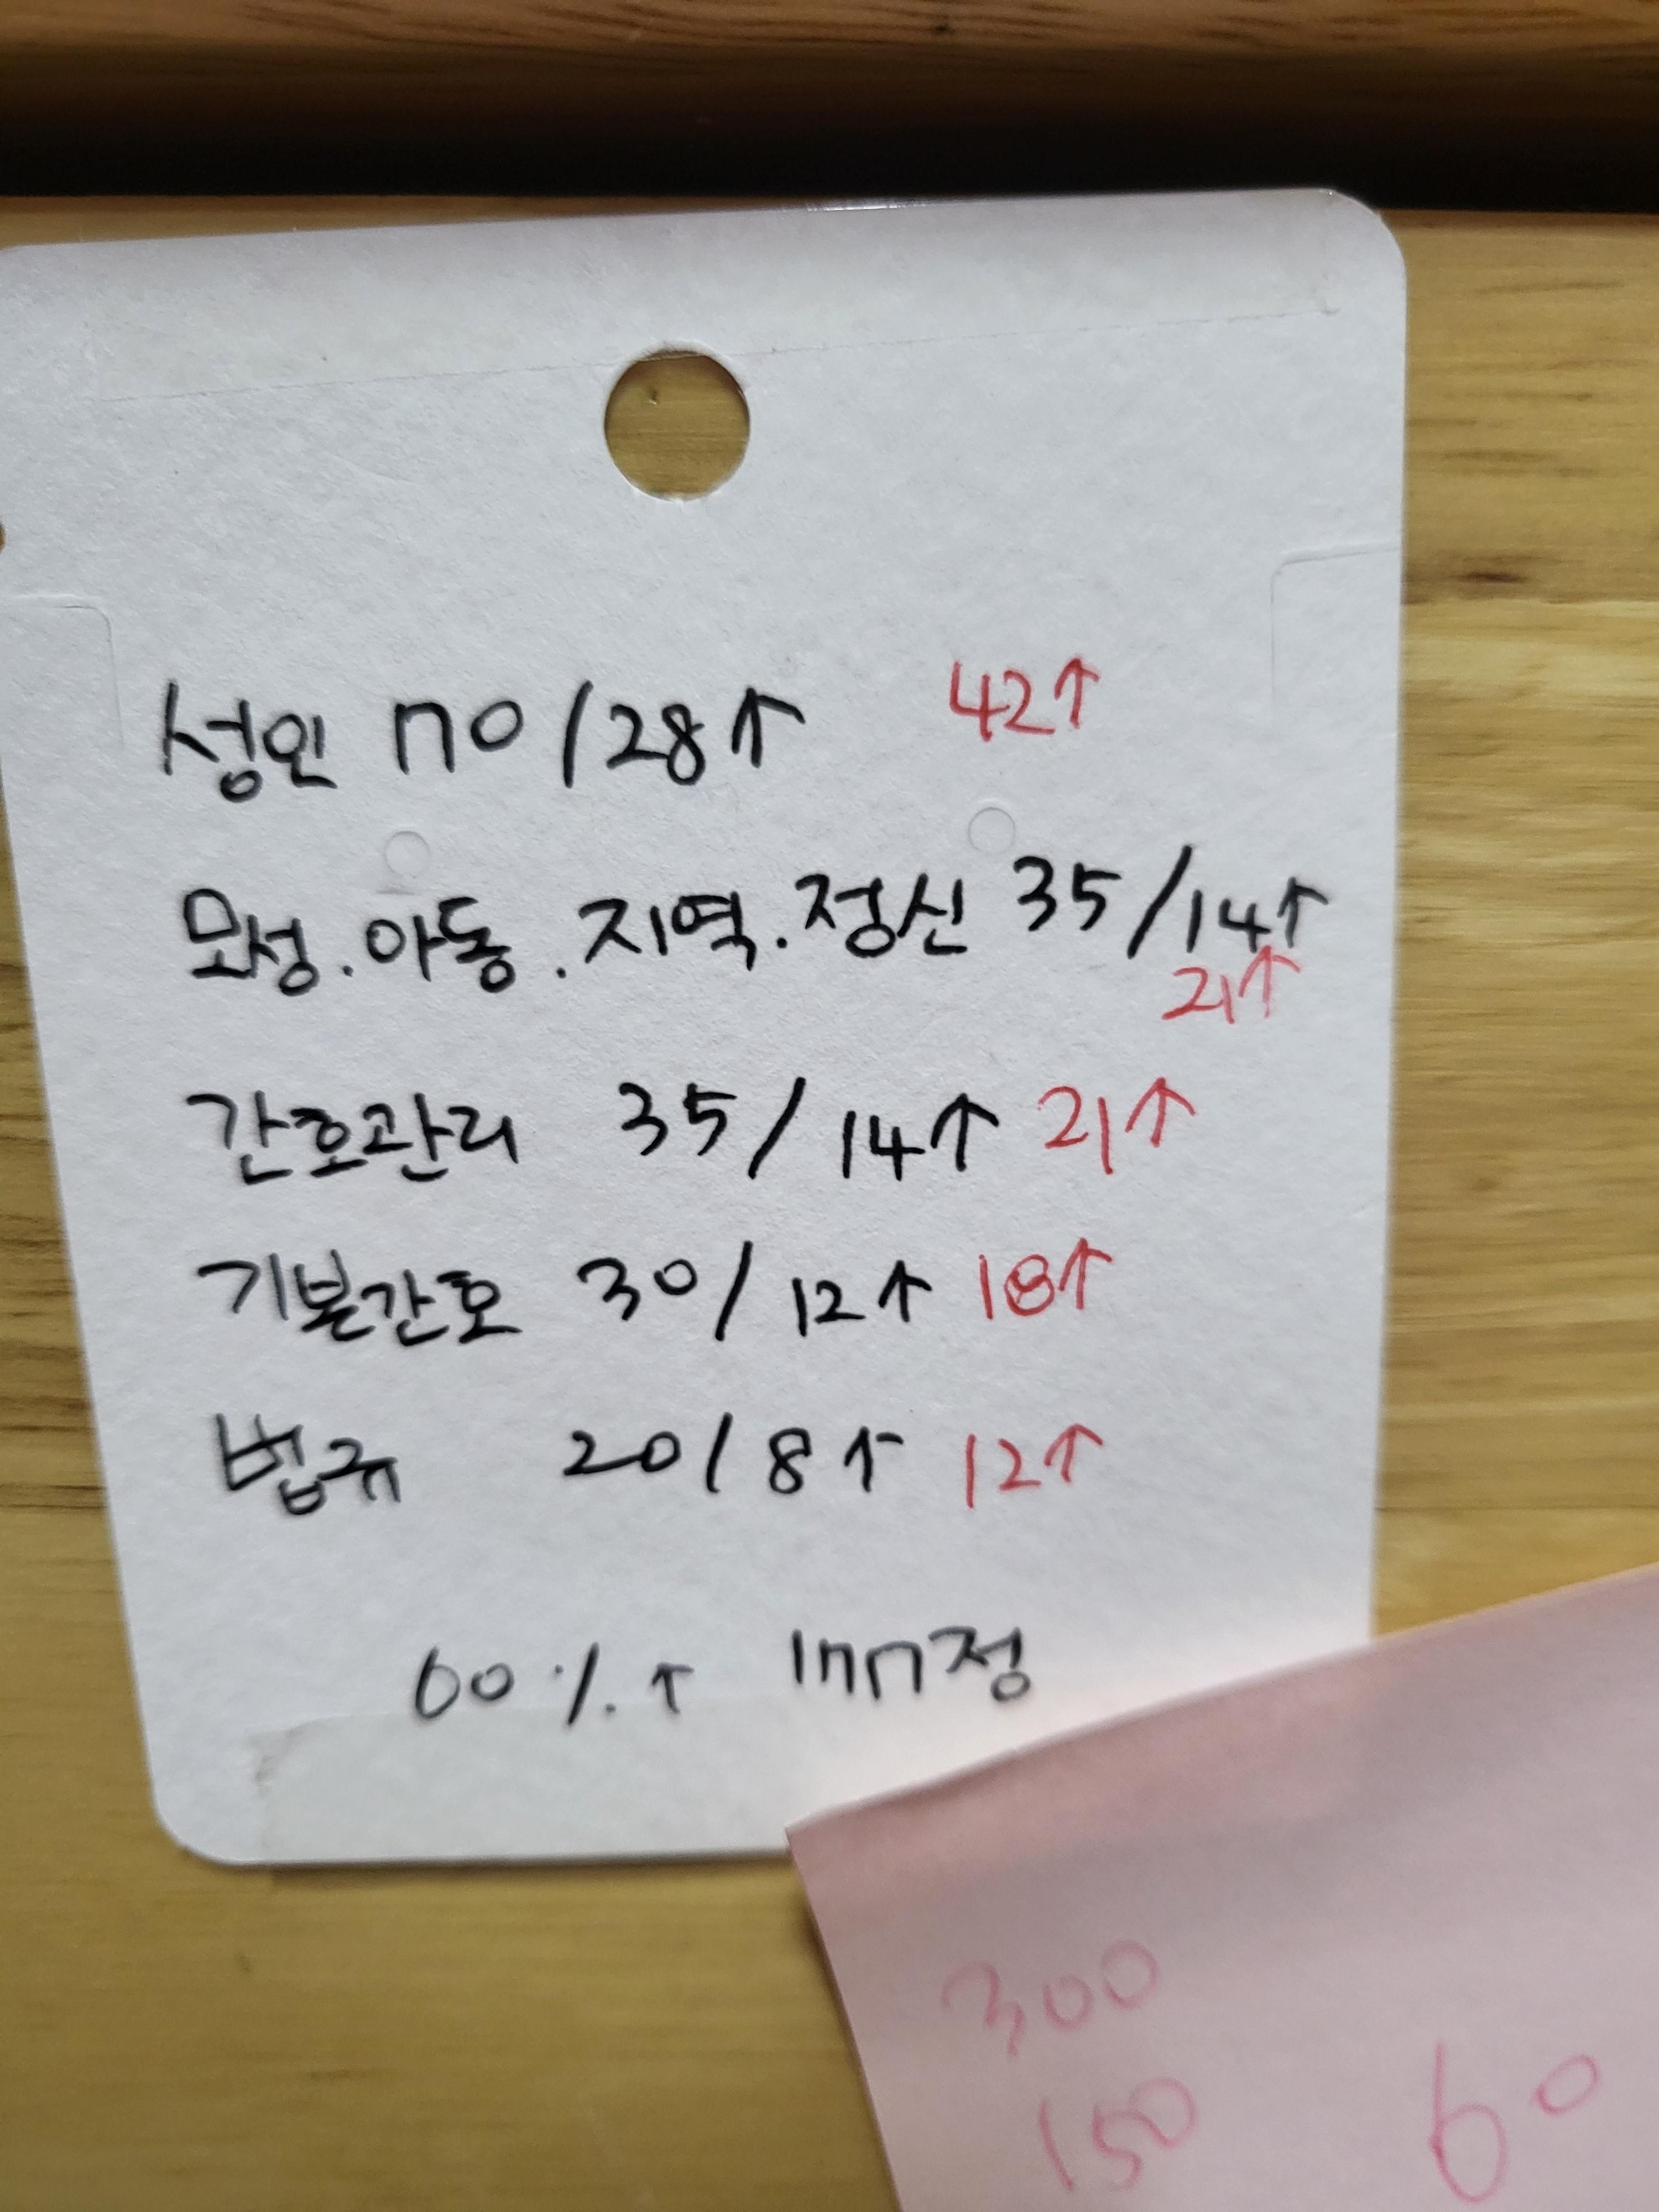 성인 70/28↑ 42↑
모성.아동.지역.정신 35/14↑
21↑
간호관리 35/14↑ 21↑
기본간호 30/12↑ 18↑
법규 20/8↑ 12↑
60%↑ 177정
300
150 60